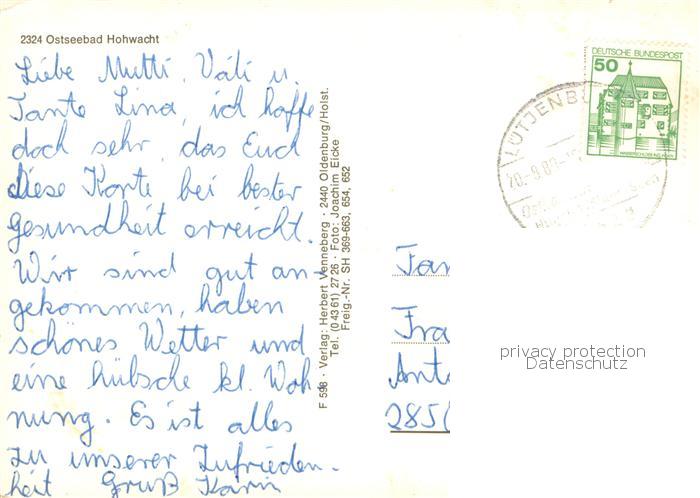 2324 Ostseebad Hohwacht
Liebe Mutti, Vati u.
Tante Lina, ich hoffe
doch sehr, das Euch
diese Karte bei bester
Gesundheit erreicht.
Wir sind gut an-
gekommen, haben
schönes Wetter und
eine hübsche kl. Woh
nung. Es ist alles
zu unserer Zufrieden-
heit Gruß Karin
F 598 · Verlag: Herbert Venneberg · 2440 Oldenburg/Holst.
Tel. (0 43 61) 27 26 · Foto: Joachim Eicke
Freig.-Nr. SH 369-663, 654, 652
DEUTSCHE BUNDESPOST
50
LÜTJENBU
20.-9.80
Fam
Fra
Anto
285
privacy protection
Datenschutz